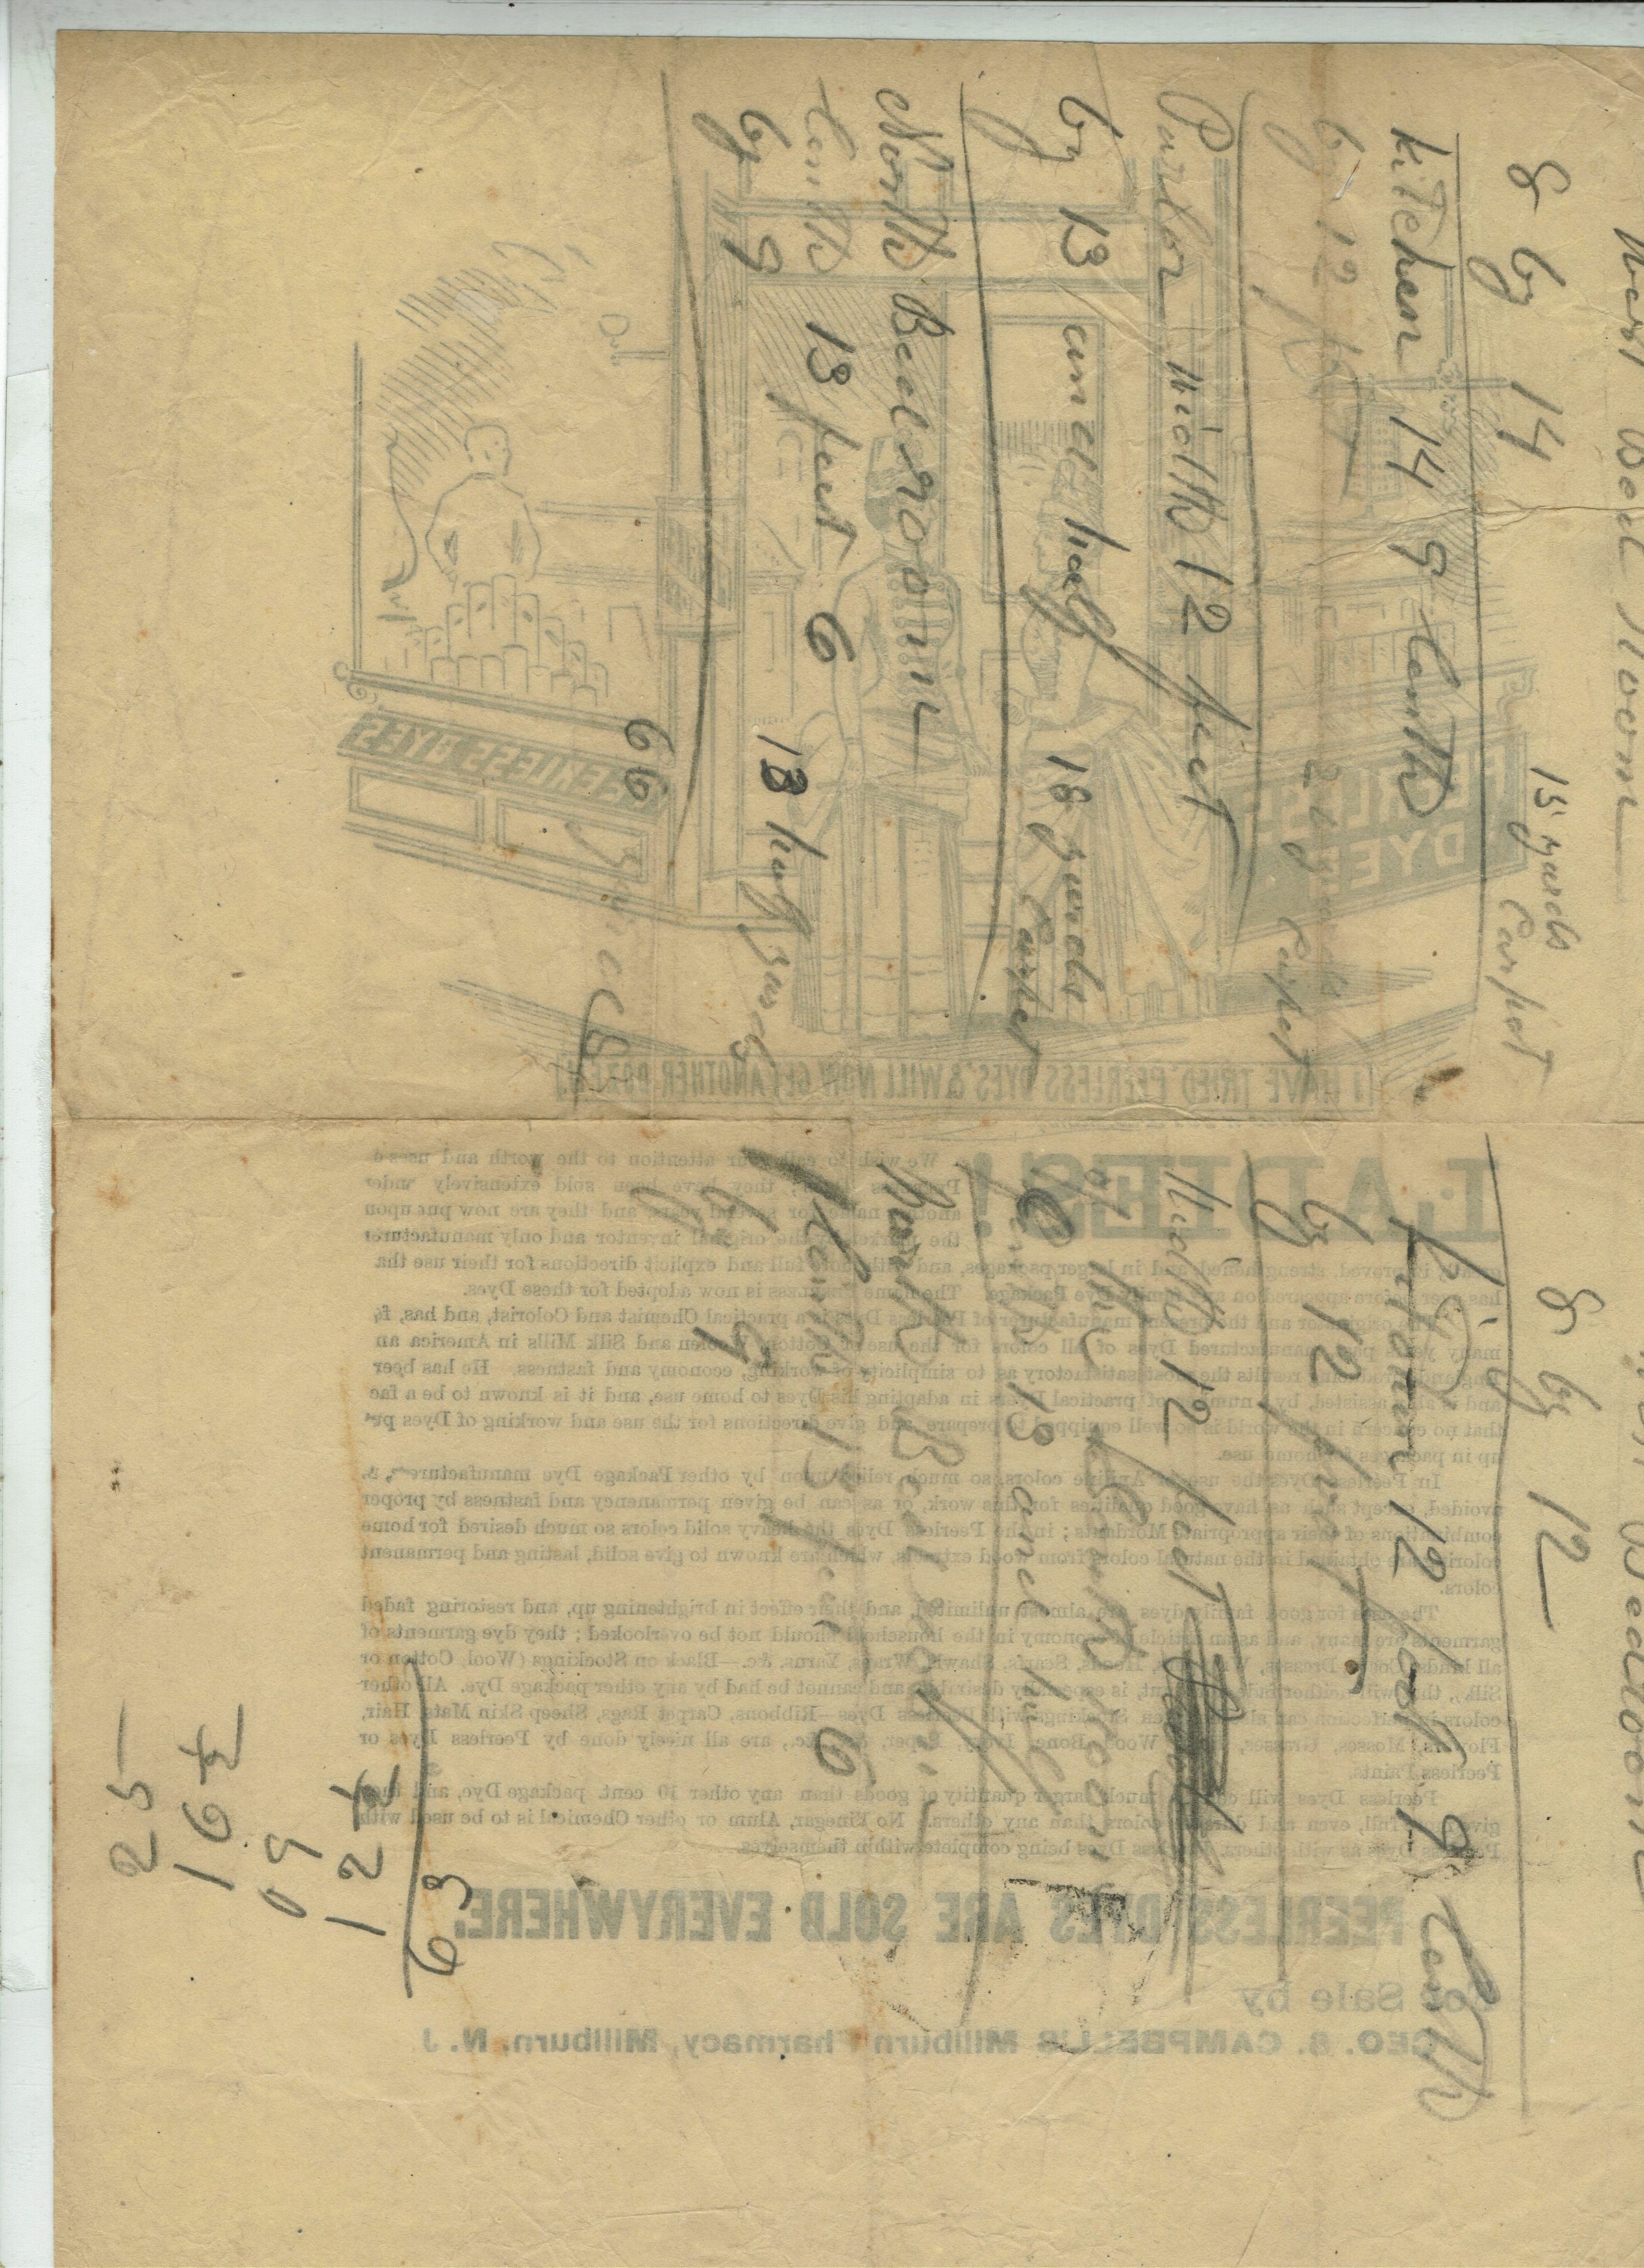 West Bed Room
8 by 14
15 yards
Carpet
Kitchen 14 9 lenth
by 12 feet
20 yards
Carpet
Parlor Width 12 feet
by 13 and half
18 yards
Carpet
North Bed room
Lenth 13 feet 6
by 9
13 half yards
66
yards
Bedroom
8 by 12
Kitchen 12 foot 9 Lenth
by 12 feet
Width 12 feet
Lenth 13 and half
North Bedroom
Lenth 13 feet 6
by 9
63
12½
09
16½
25
PEERLESS DYES
PEERLESS DYES
I HAVE TRIED PEERLESS DYES & WILL NOW GET ANOTHER DOZEN
LADIES!
We wish to call your attention to the worth and uses of
Peerless Dyes; they have been sold extensively under
another name for several years, and they are now put upon
the market by the original inventor and only manufacturer
improved, strengthened and in larger packages, and with more full and explicit directions for their use tha
The name Peerless is now adopted for these Dyes.
The originator and the present manufacturer of Peerless Dyes is a practical Chemist and Colorist, and has, f
many years past manufactured Dyes of all colors for the use of Cotton, Woolen and Silk Mills in America an
England, with results the most satisfactory as to simplicity of working, economy and fastness. He has beer
and is also assisted, by a number of practical Dyers in adapting his Dyes to home use, and it is known to be a fac
that no concern in the world is so well equipped to prepare and give directions for the use and working of Dyes
up in packages for home use.
In Peerless Dyes the use of Aniline colors, so much relied upon by other Package Dye manufacture
avoided, except such as have good qualities for this work, or as can be given permanency and fastness by proper
combinations of their appropriate Mordants; in the Peerless Dyes the heavy solid colors so much desired for home
coloring are obtained in the natural colors from wood extracts, which are known to give solid, lasting and permanent
colors.
The uses for good family dyes are almost unlimited, and their effect in brightening up, and restoring faded
garments are many, and as an article of economy in the household should not be overlooked; they dye garments of
all kinds, Coats, Dresses, Hoods, Scarfs, Shawls, Wraps, Yarns, &c.—Black on Stockings (Wool, Cotton or
Silk,) is especially desirable and cannot be had by any other package Dye. All other
colors in perfection can also Stockings with Peerless Dyes—Ribbons, Carpet Rags, Sheep Skin Mats, Hair,
Flowers, Mosses, Grasses, Wood, Bone, Ivory, Paper, &c., are all nicely done by Peerless Dyes or
Peerless Paints.
Peerless Dyes will color much larger quantity of goods than any other 10 cent package Dye, and
give full, even and colors than any others. No Vinegar, Alum or other Chemical is to be used with
Peerless Dyes as with others, Peerless Dyes being complete within themselves.
PEERLESS DYES ARE SOLD EVERYWHERE.
For Sale by
GEO. S. CAMPBELL'S Millburn Pharmacy, Millburn, N. J